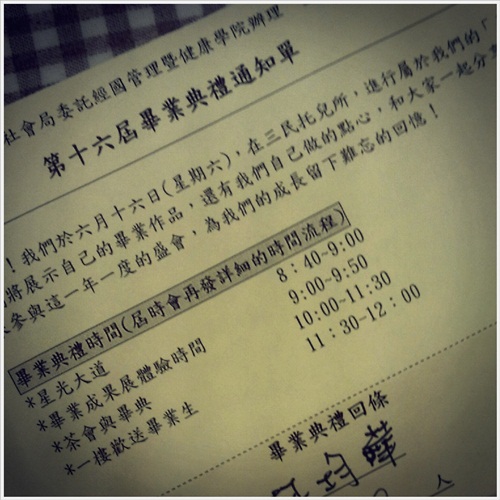 社會局委託經國管理暨健康學院辦理
第十六屆畢業典禮通知單
！我們於六月十六日(星期六)，在三民托兒所，進行屬於我們的「
將展示自己的畢業作品，還有我們自己做的點心，和大家一起分
參與這一年一度的盛會，為我們的成長留下難忘的回憶！
畢業典禮時間(屆時會再發詳細的時間流程)
*星光大道 8：40~9:00
*畢業成果展體驗時間 9:00~9:50
*茶會與畢典 10:00~11:30
*一樓歡送畢業生 11：30~12：00
畢業典禮回條
均